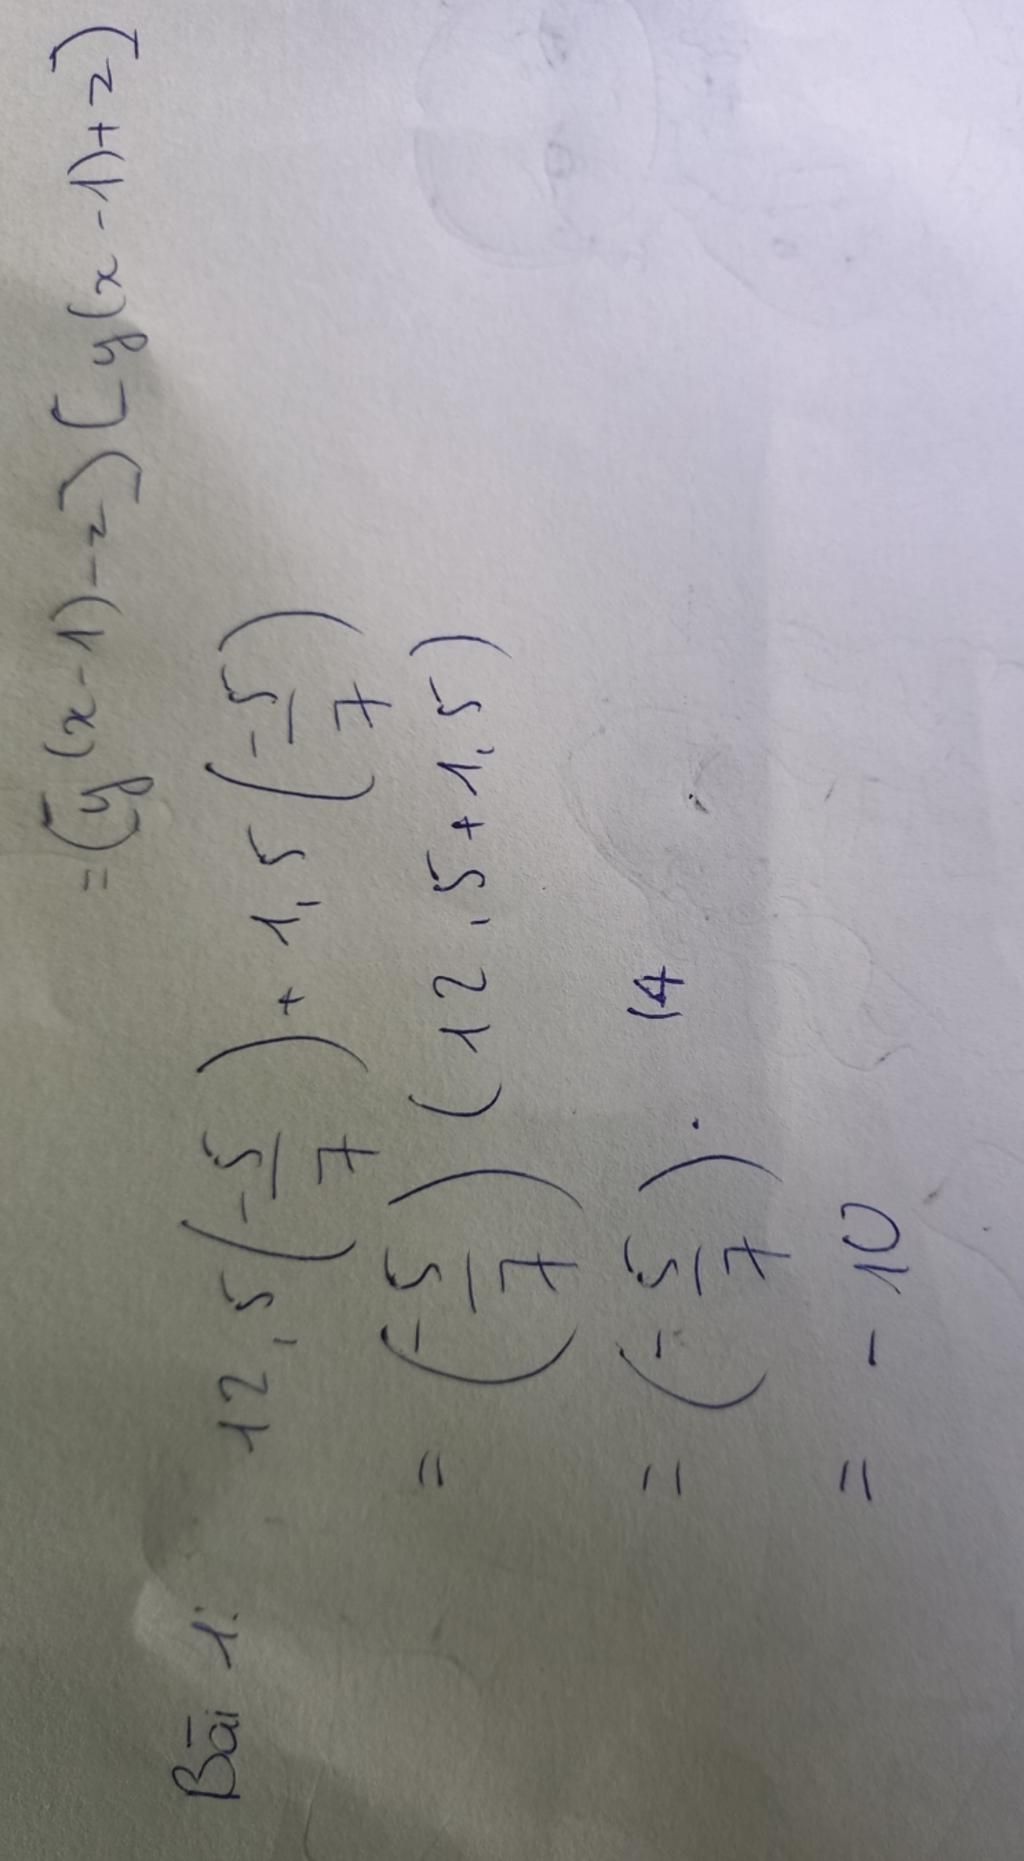 = [y(x-1)-z][y(x-1)+z]
Bài 1: 12,5(-5/7) + 1,5(-5/7)
= (-5/7)(12,5+1,5)
= (-5/7) . 14
= -10